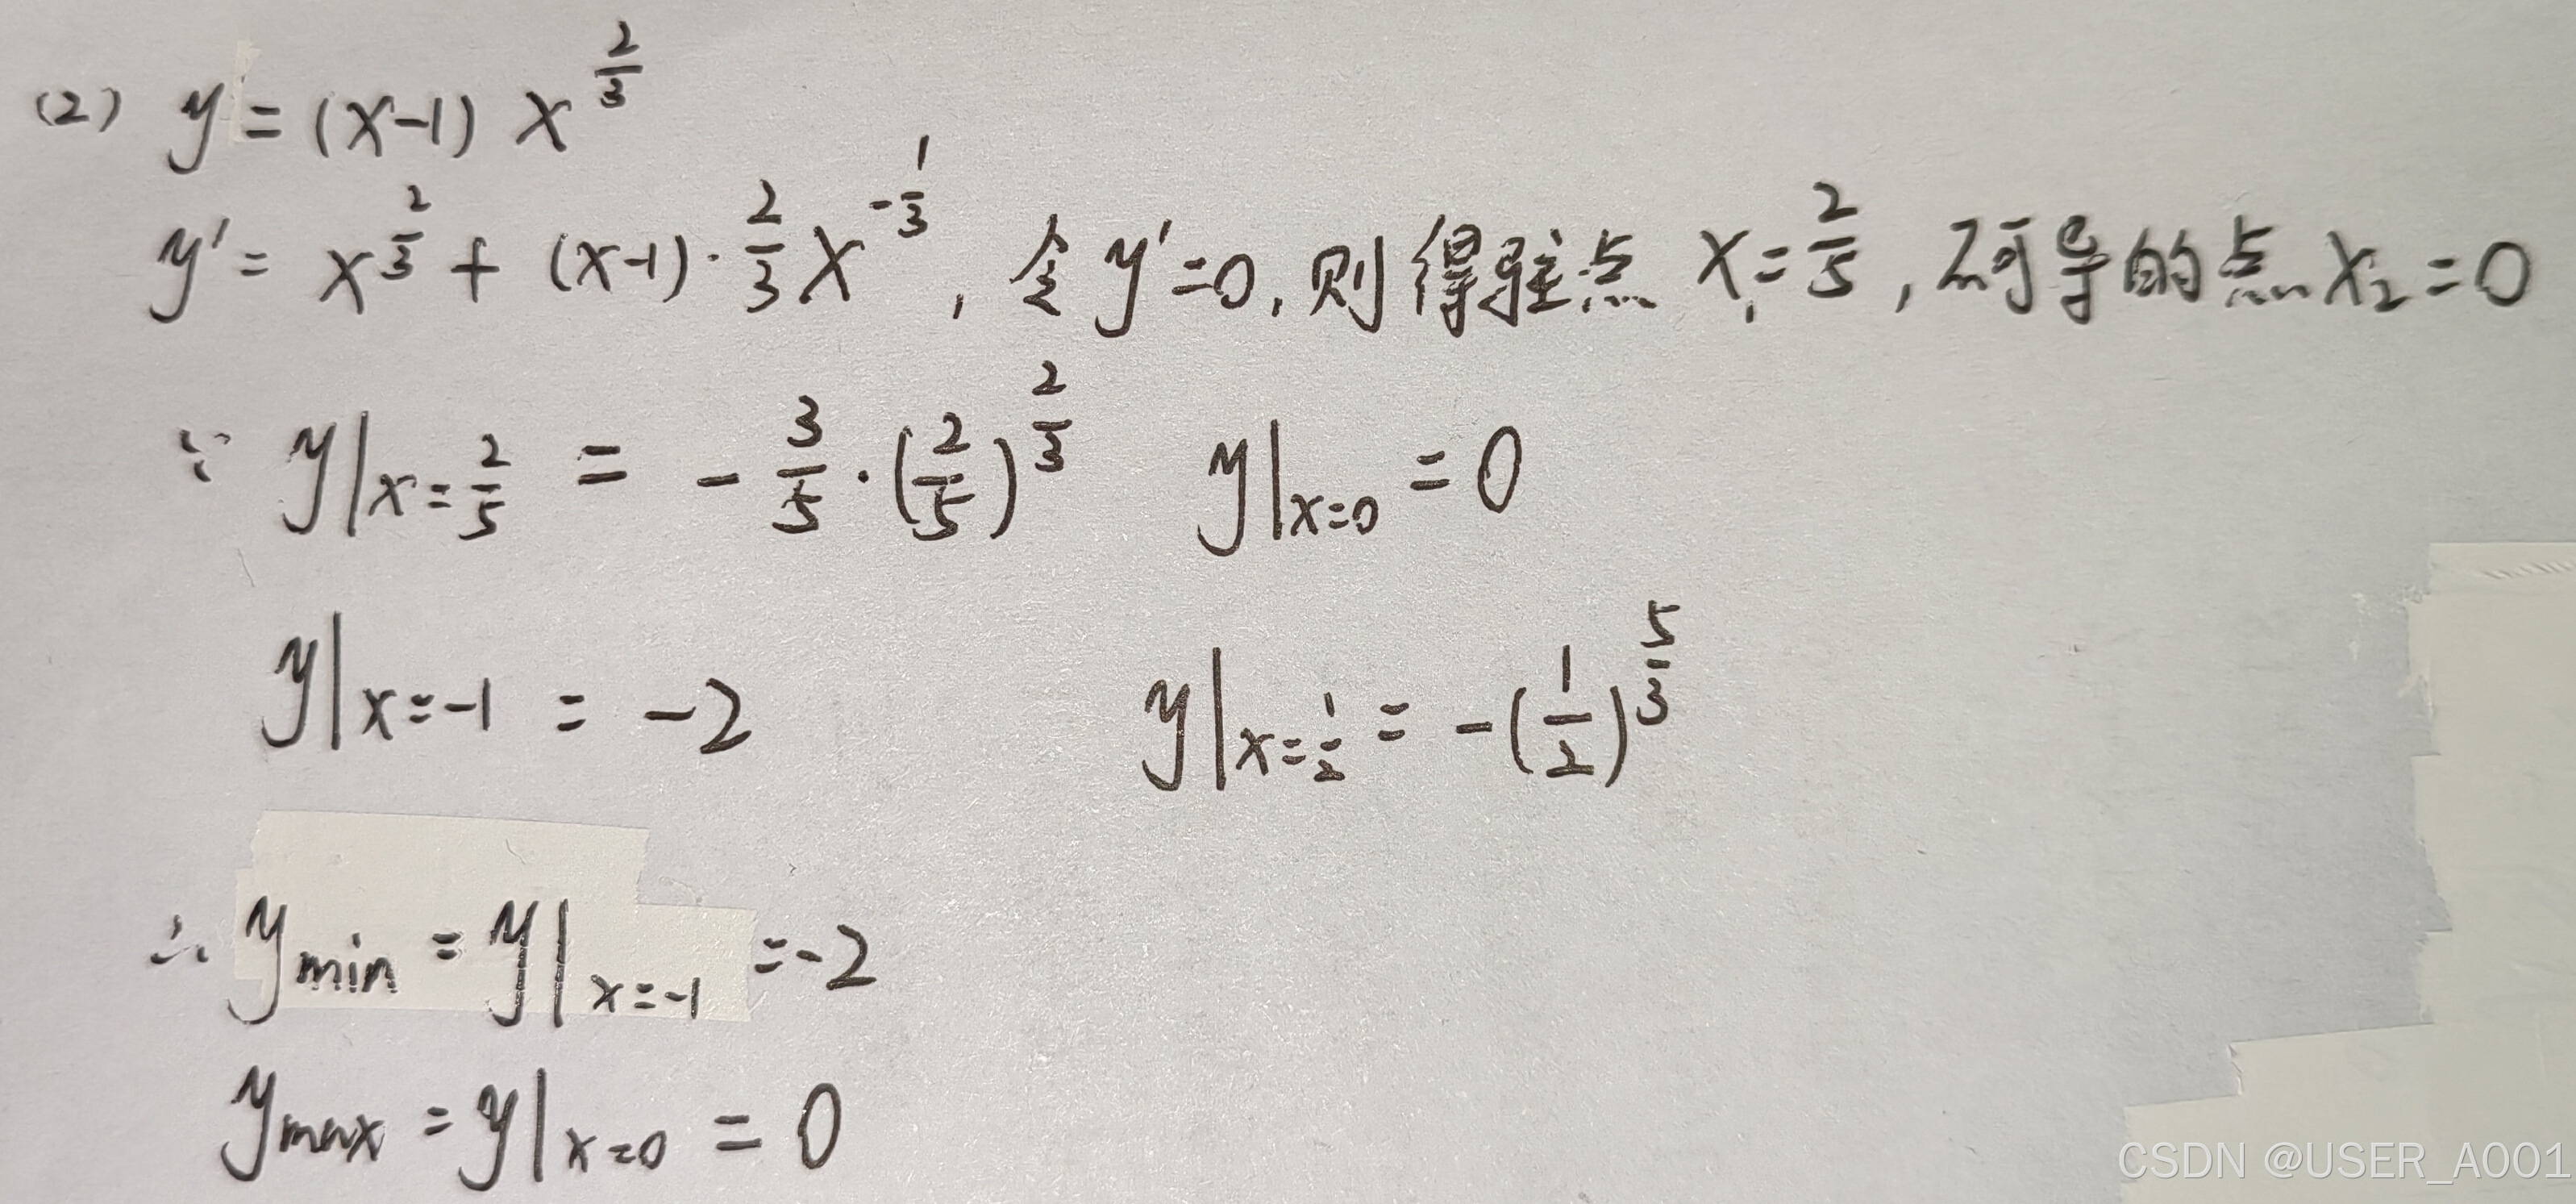 (2) y = (x-1) x^{2/3}
y' = x^{2/3} + (x-1)·2/3 x^{-1/3}, 令 y'=0, 则得驻点 x₁=2/5, 不可导的点 x₂=0
∵ y|x=2/5 = -3/5·(2/5)^{2/3} y|x=0 = 0
y|x=-1 = -2 y|x=1/2 = -(1/2)^{5/3}
∴ ymin = y|x=-1 =-2
ymax = y|x=0 = 0
CSDN @USER_A001